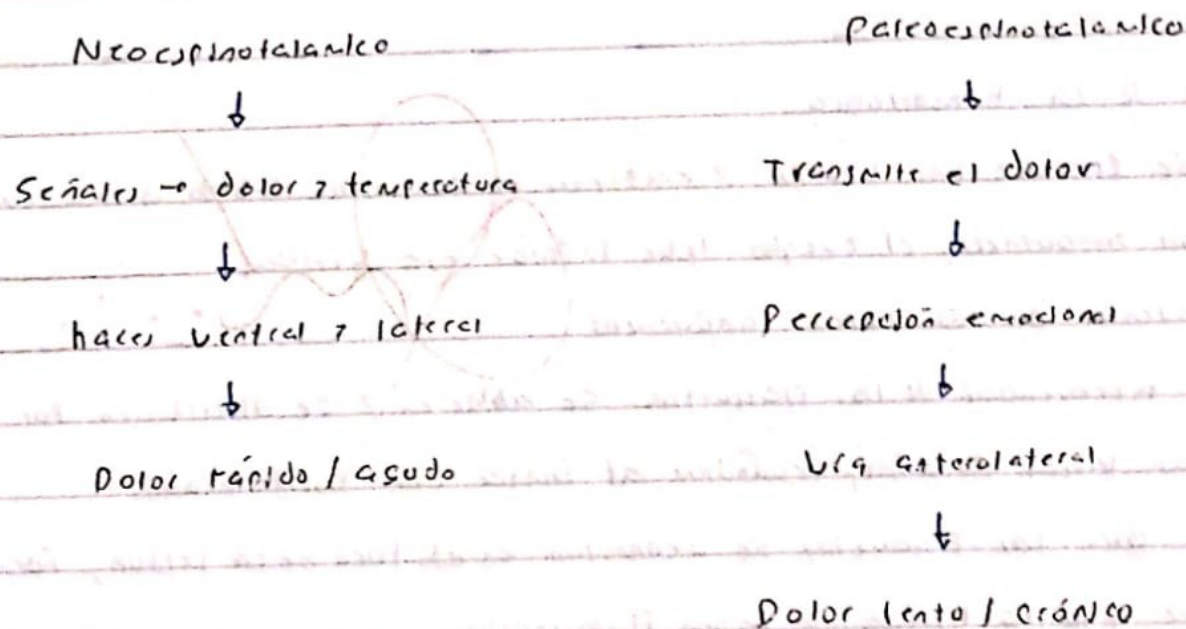 Neoespinotalamico
Señales → dolor y temperatura
haces ventral y lateral
Dolor rápido / agudo
Paleoespinotalamico
Transmite el dolor
Percepción emocional
Vía anterolateral
Dolor lento / crónico